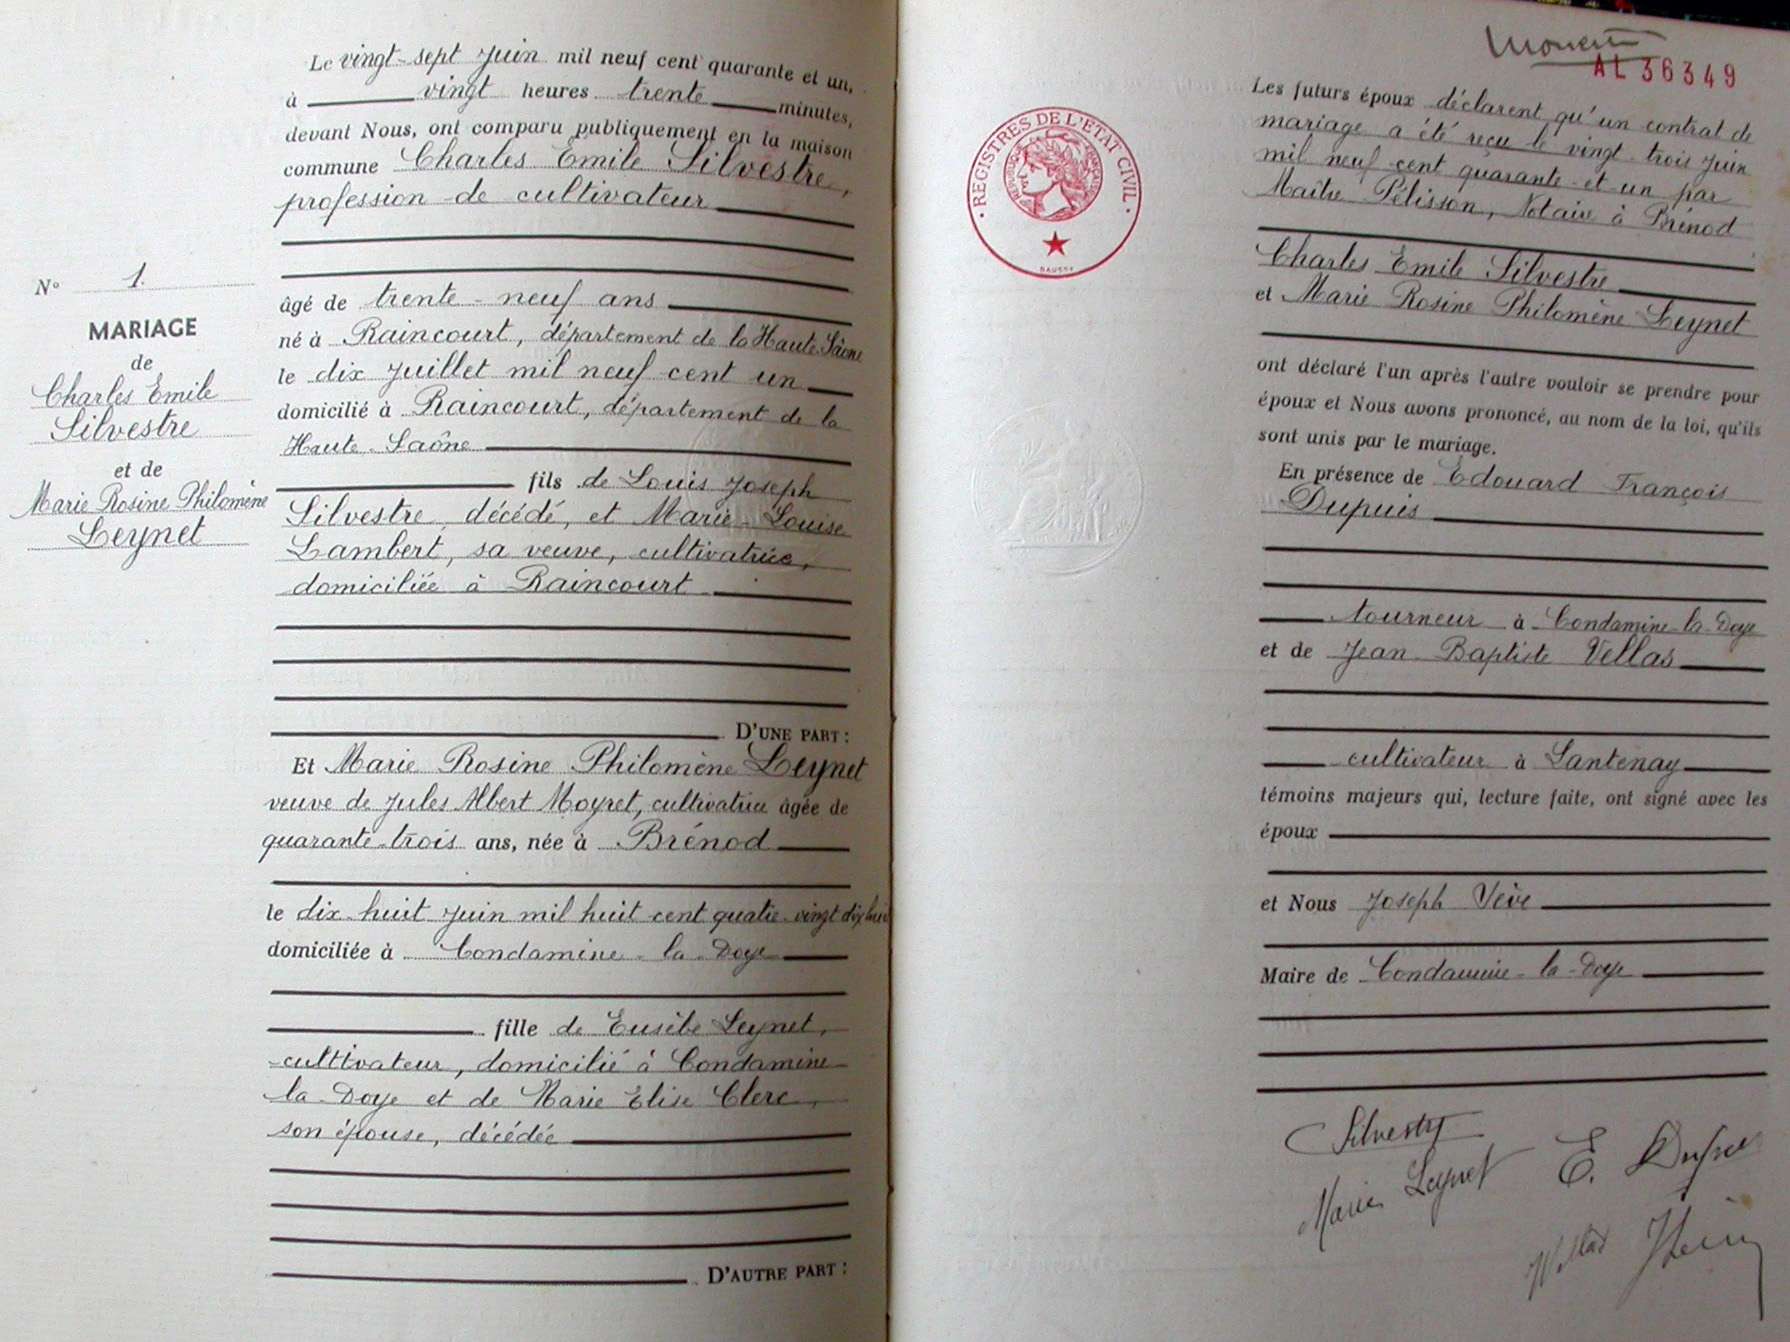 Le vingt-sept Juin mil neuf cent quarante et un,
à vingt heures trente minutes,
devant Nous, ont comparu publiquement en la maison
commune Charles Emile Silvestre,
profession de cultivateur
âgé de trente-neuf ans
né à Raincourt, département de la Haute Saône
le dix Juillet mil neuf cent un
domicilié à Raincourt, département de la
Haute-Saône
fils de Louis Joseph
Silvestre, décédé, et Marie-Louise
Lambert, sa veuve, cultivatrice,
domiciliée à Raincourt
D'UNE PART :
Et Marie Rosine Philomène Leynet
veuve de Jules Albert Moyret, cultivatrice âgée de
quarante-trois ans, née à Brénod
le dix-huit Juin mil huit cent quatre-vingt dix huit
domiciliée à Condamine-la-Doye
fille de Eusèbe Leynet,
cultivateur, domicilié à Condamine
la-Doye et de Marie Elise Clerc,
son épouse, décédée
D'AUTRE PART :
N° 1.
MARIAGE
de
Charles Emile
Silvestre
et de
Marie Rosine Philomène
Leynet
AL 36349
REGISTRES DE L'ETAT CIVIL
REPUBLIQUE FRANÇAISE
Les futurs époux déclarent qu'un contrat de
mariage a été reçu le vingt-trois Juin
mil neuf cent quarante-et-un par
Maître Pélisson, Notaire à Brénod
Charles Emile Silvestre
et Marie Rosine Philomène Leynet
ont déclaré l'un après l'autre vouloir se prendre pour
époux et Nous avons prononcé, au nom de la loi, qu'ils
sont unis par le mariage.
En présence de Edouard François
Dupuis
tourneur à Condamine-la-Doye
et de Jean-Baptiste Vellas
cultivateur à Lantenay
témoins majeurs qui, lecture faite, ont signé avec les
époux
et Nous Joseph Vève
Maire de Condamine-la-Doye
Silvestre
Marie Leynet
E. Dupuis
Vellas